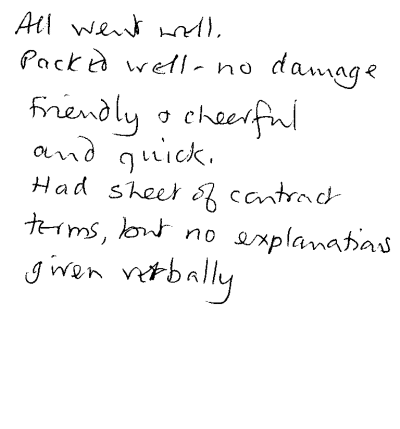 All went well.
Packed well - no damage
Friendly & cheerful
and quick.
Had sheet of contract
terms, but no explanations
given verbally